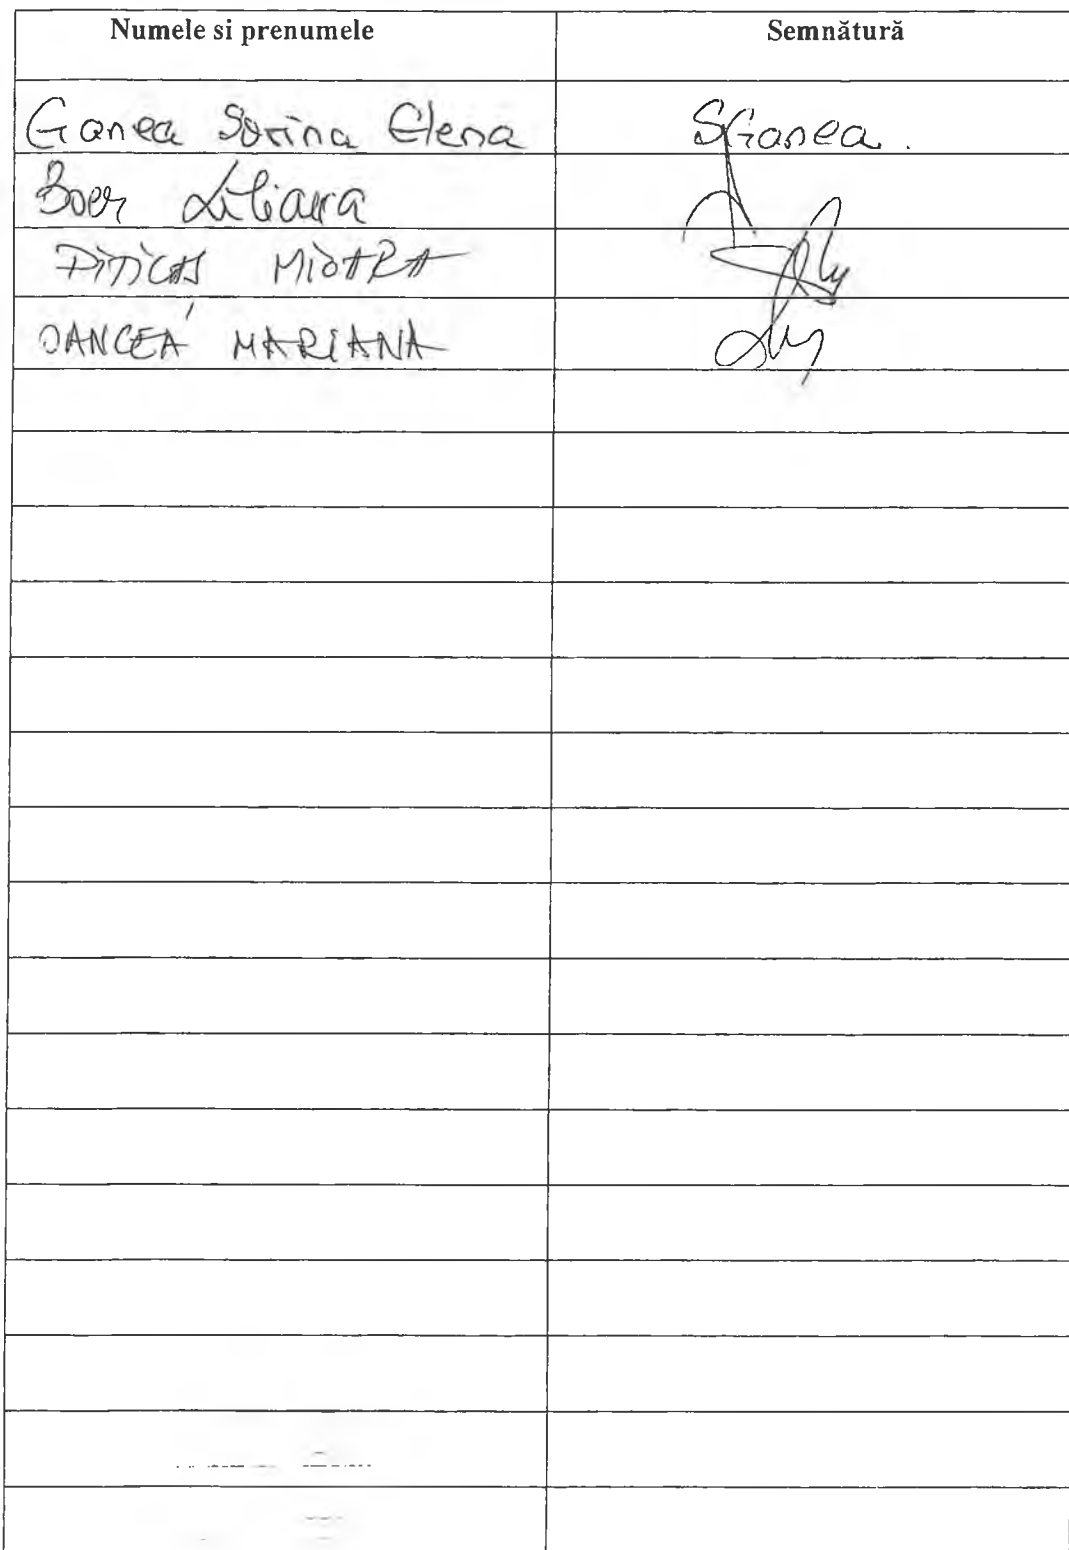 Numele si prenumele Semnătură
Ganea Sorina Elena SGanea.
Boer Liliana
PITICAȘ MIOARA
OANCEA MARIANA